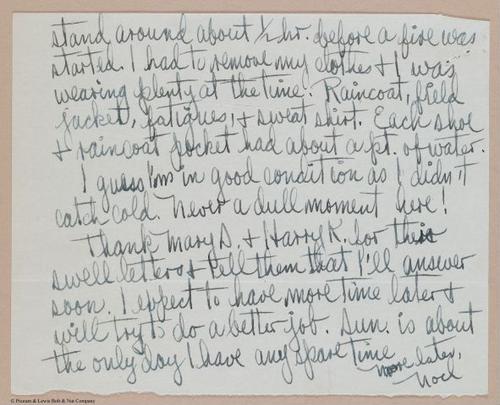 stand around about 1/2 hr. before a fire was
started. I had to remove my clothes & I was
wearing plenty at the time. Raincoat, field
jacket, fatigues, & sweat shirt. Each shoe
& raincoat pocket had about a pt. of water.
I guess I'm in good condition as I didn't
catch cold. Never a dull moment here!
Thank Mary D. & Harry K. for their
swell letters & tell them that I'll answer
soon. I expect to have more time later &
will try to do a better job. Sun. is about
the only day I have any spare time
more later,
Noel
© Pissram & Lewis Bolt & Nut Company